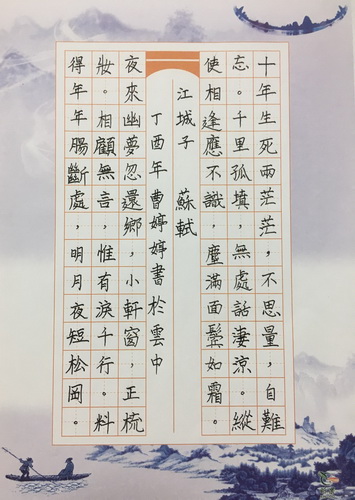 十年生死兩茫茫，不思量，自難
忘。千里孤墳，無處話淒涼。縱
使相逢應不識，塵滿面鬢如霜。
江城子 蘇軾
丁酉年曹婷婷書於雲中
夜來幽夢忽還鄉，小軒窗，正梳
妝。相顧無言，惟有淚千行。料
得年年腸斷處，明月夜短松岡。